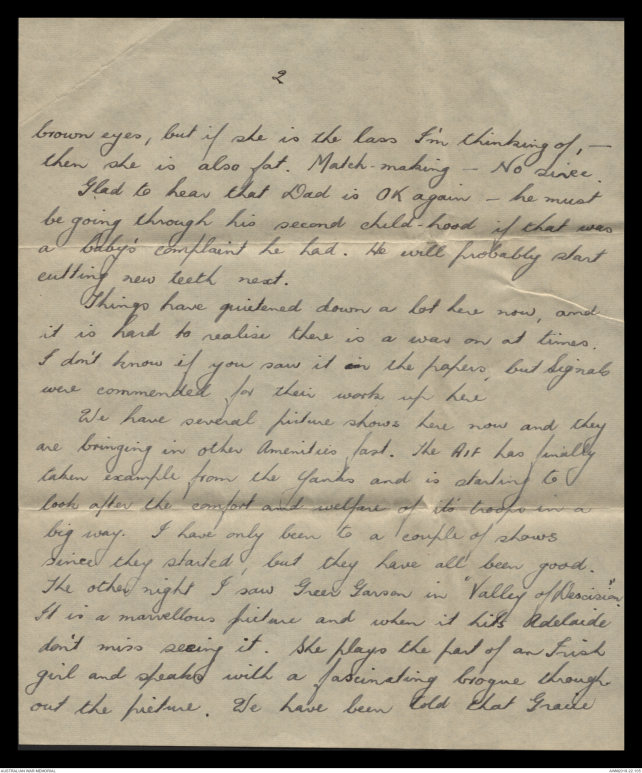 2
brown eyes, but if she is the lass I'm thinking of, —
then she is also fat. Match-making — No siree.
Glad to hear that Dad is OK again — he must
be going through his second child-hood if that was
a baby's complaint he had. He will probably start
cutting new teeth next.
Things have quietened down a lot here now, and
it is hard to realise there is a war on at times.
I don't know if you saw it in the papers, but Signals
were commended for their work up here
We have several picture shows here now and they
are bringing in other Amenities fast. The AIF has finally
taken example from the Yanks and is starting to
look after the comfort and welfare of it's troops in a
big way. I have only been to a couple of shows
since they started, but they have all been good.
The other night I saw Greer Garson in "Valley of Descision".
It is a marvellous picture and when it hits Adelaide
don't miss seeing it. She plays the part of an Irish
girl and speaks with a fascinating brogue through
out the picture. We have been told that Gracie
AUSTRALIAN WAR MEMORIAL